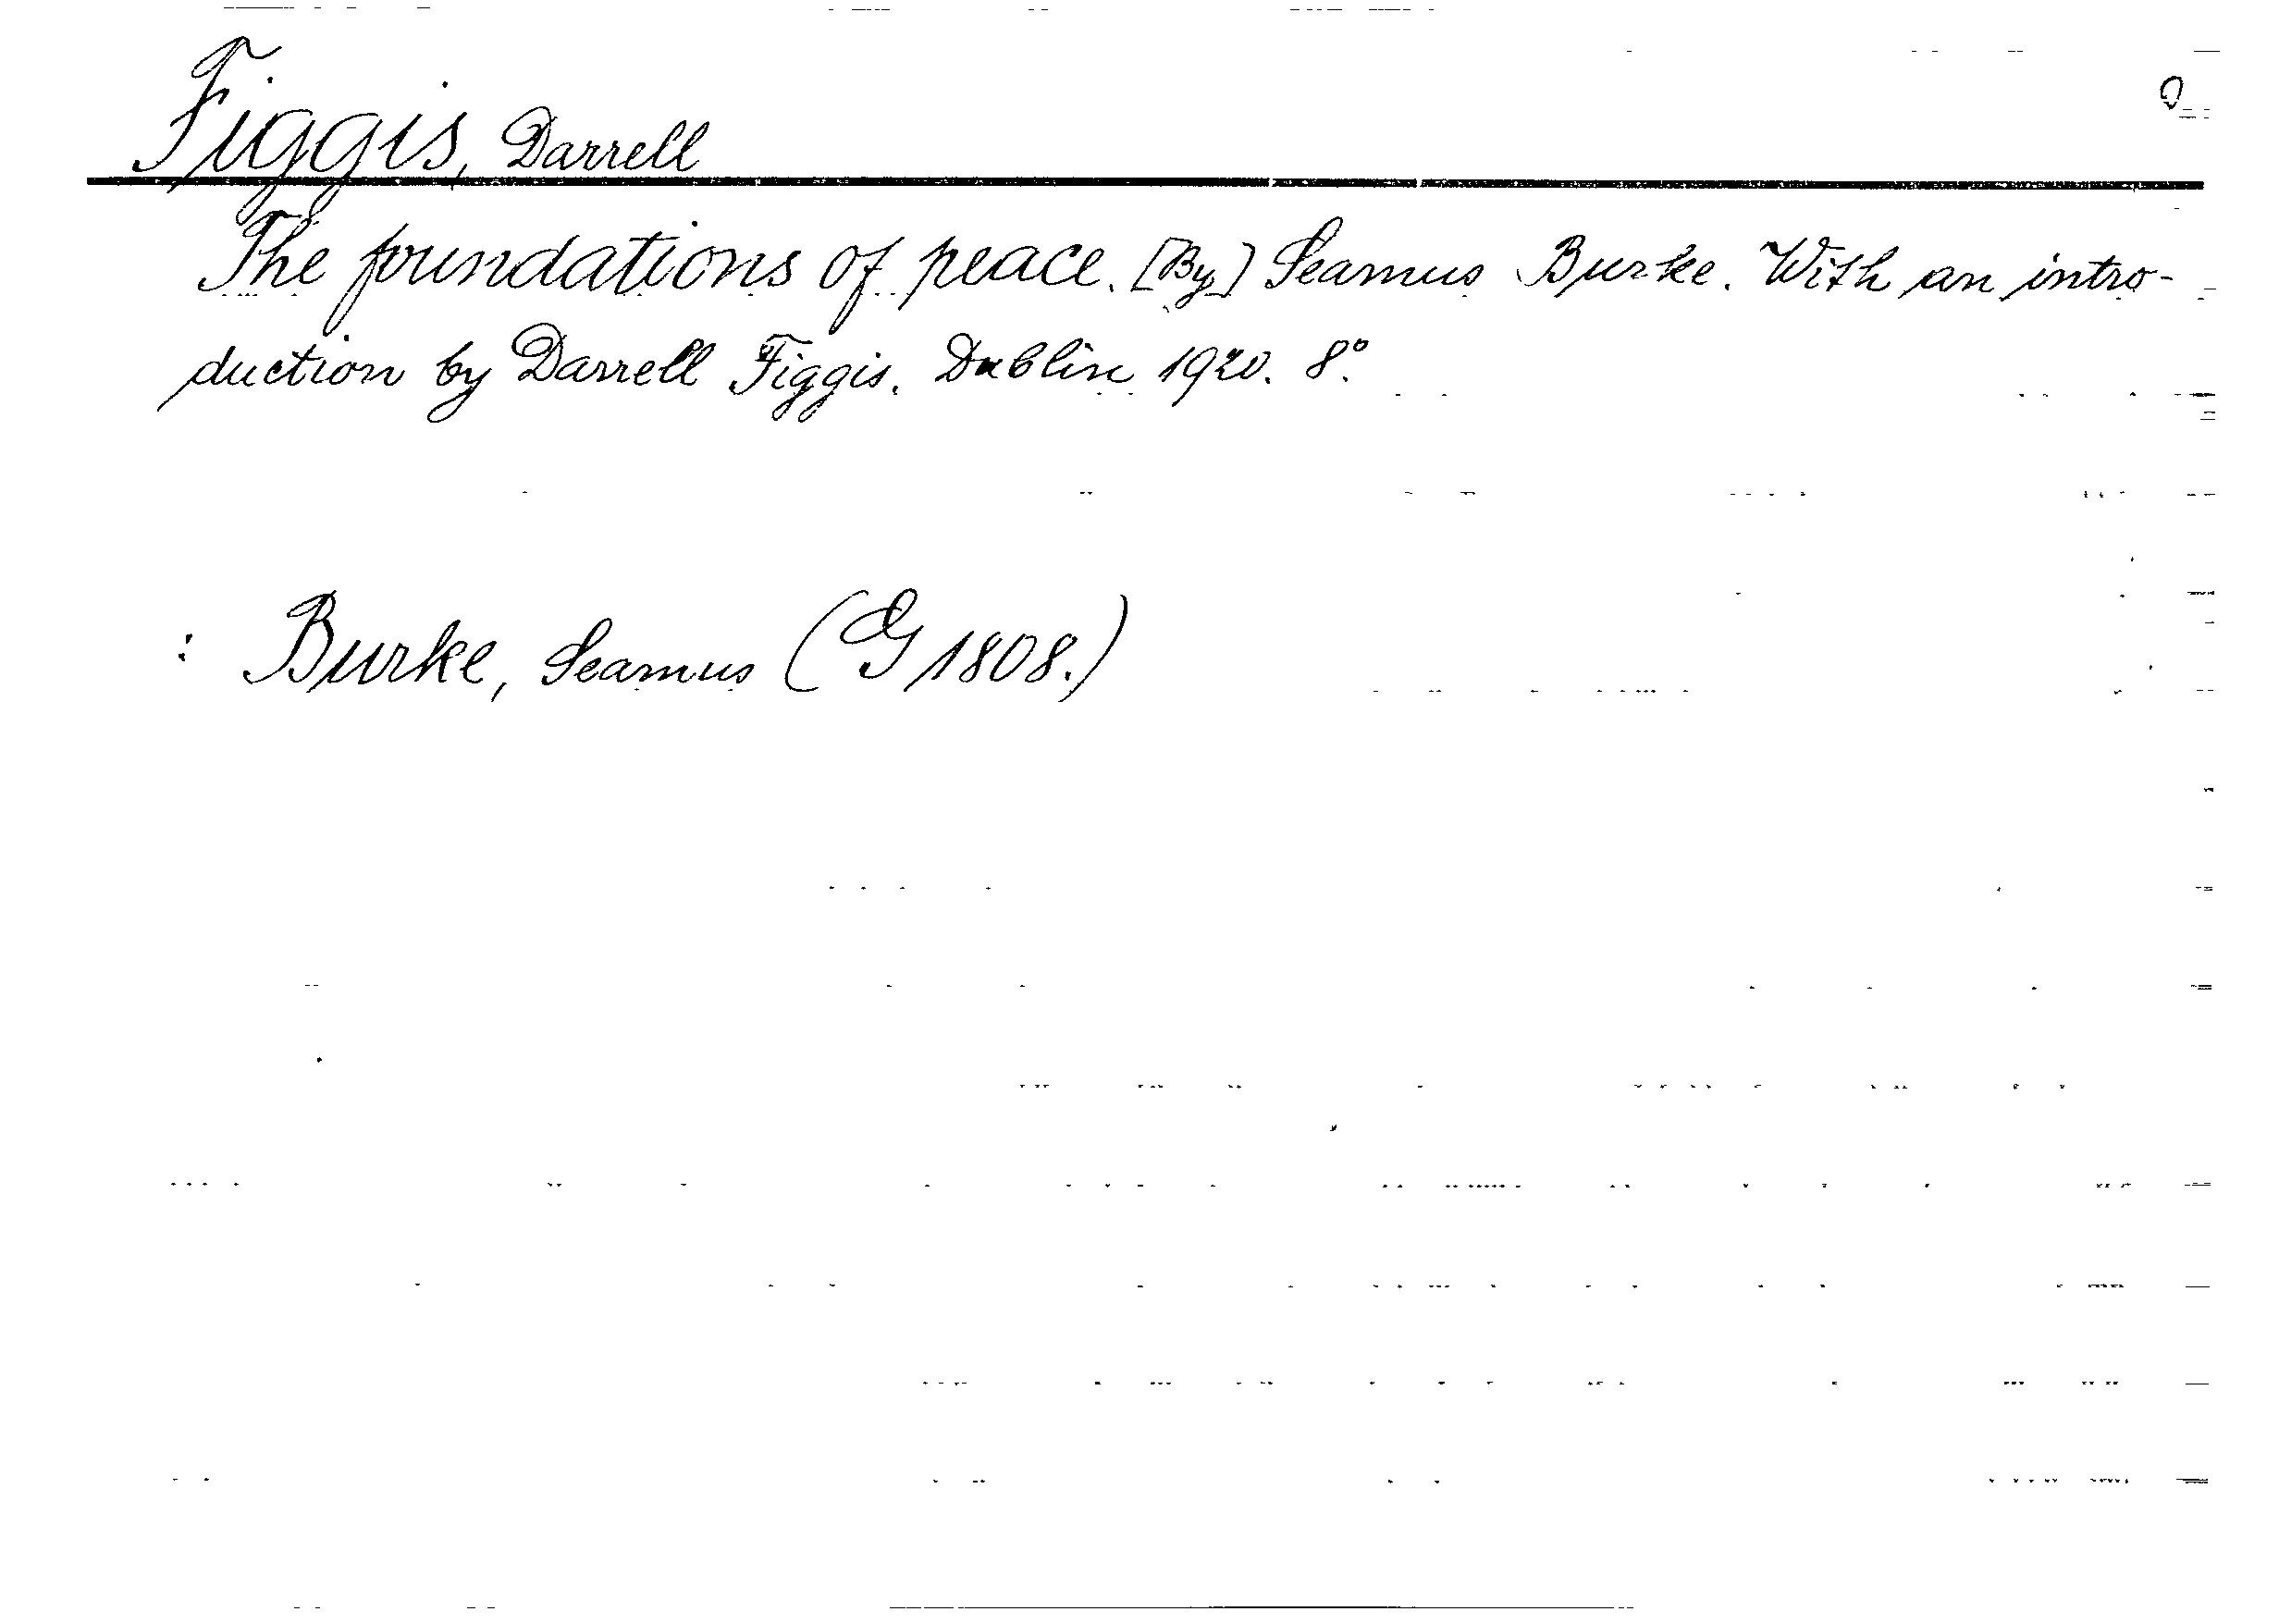 Figgis, Darrell
The foundations of peace. [By] Seamus Burke. With an intro-
duction by Darrell Figgis. Dublin 1920. 8°.
: Burke, Seamus (G 1808.)